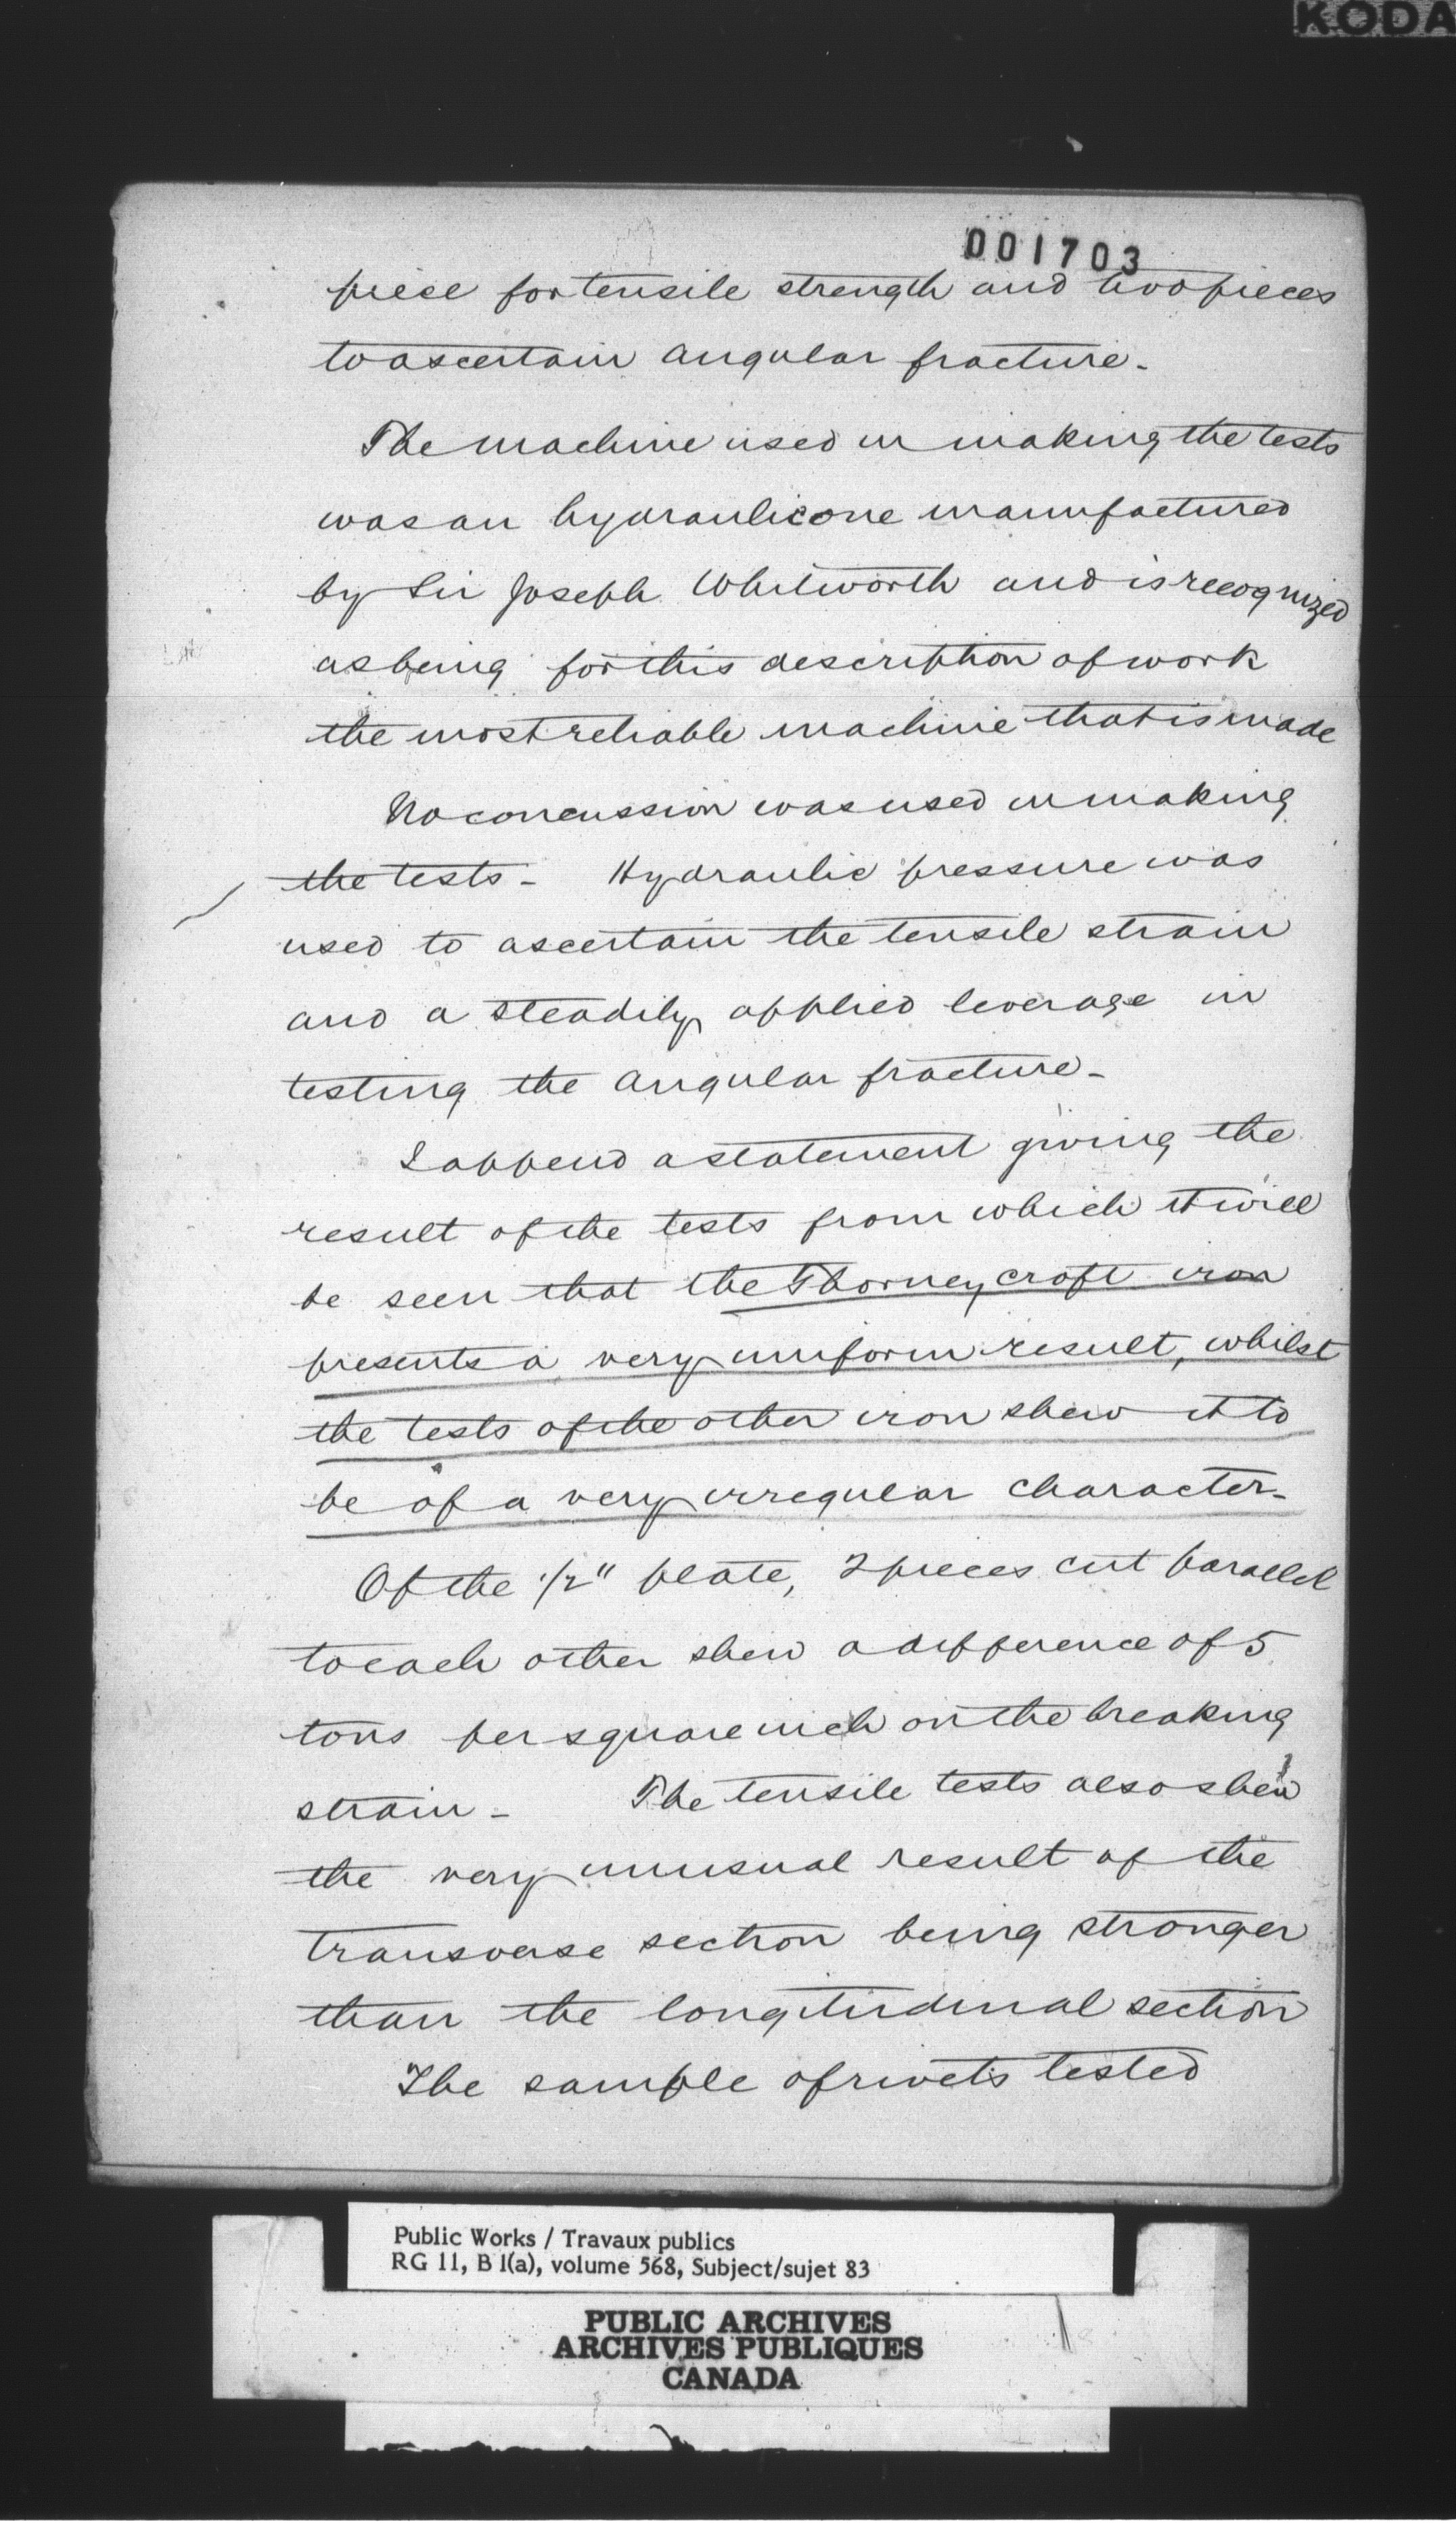 KODA
001703
piece for tensile strength and two pieces
to ascertain angular fracture.
The machine used in making the tests
was an hydraulic one manufactured
by Sir Joseph Whitworth and is recognized
as being for this description of work
the most reliable machine that is made
No concussion was used in making
the tests - Hydraulic pressure was
used to ascertain the tensile strain
and a steadily applied leverage in
testing the angular fracture -
I append a statement giving the
result of the tests from which it will
be seen that the Thorneycroft iron
presents a very uniform result, whilst
the tests of the other iron shew it to
be of a very irregular character -
Of the 1/2" plate, 2 pieces cut parallel
to each other shew a difference of 5
tons per square inch on the breaking
strain - The tensile tests also shew
the very unusual result of the
transverse section being stronger
than the longitudinal section
The sample of rivets tested
Public Works / Travaux publics
RG 11, B 1(a), volume 568, Subject/sujet 83
PUBLIC ARCHIVES
ARCHIVES PUBLIQUES
CANADA